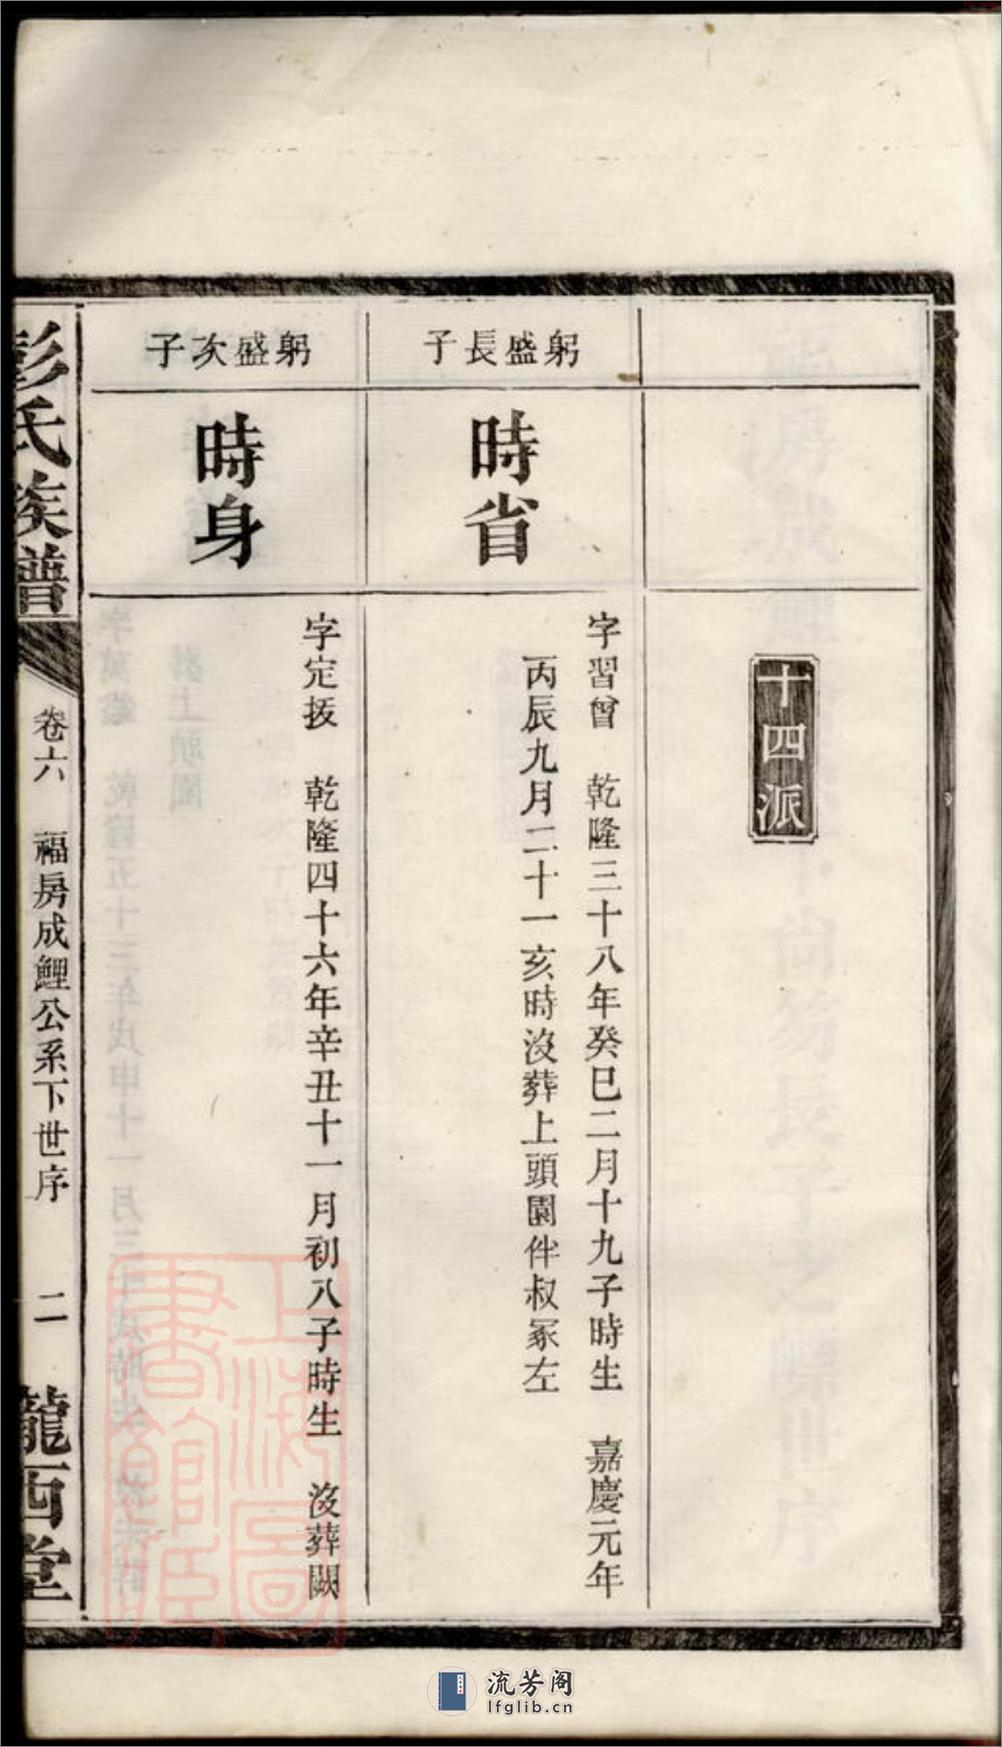 十四派
躬盛長子
時省
字習曾　乾隆三十八年癸巳二月十九子時生　嘉慶元年
丙辰九月二十一亥時沒葬上頭園伴叔冢左
躬盛次子
時身
字定拔　乾隆四十六年辛丑十一月初八子時生　沒葬闕
彭氏族譜
卷六　福房成鯉公系下世序　二
隴西堂
上海圖書館藏
流芳阁
lfglib.cn